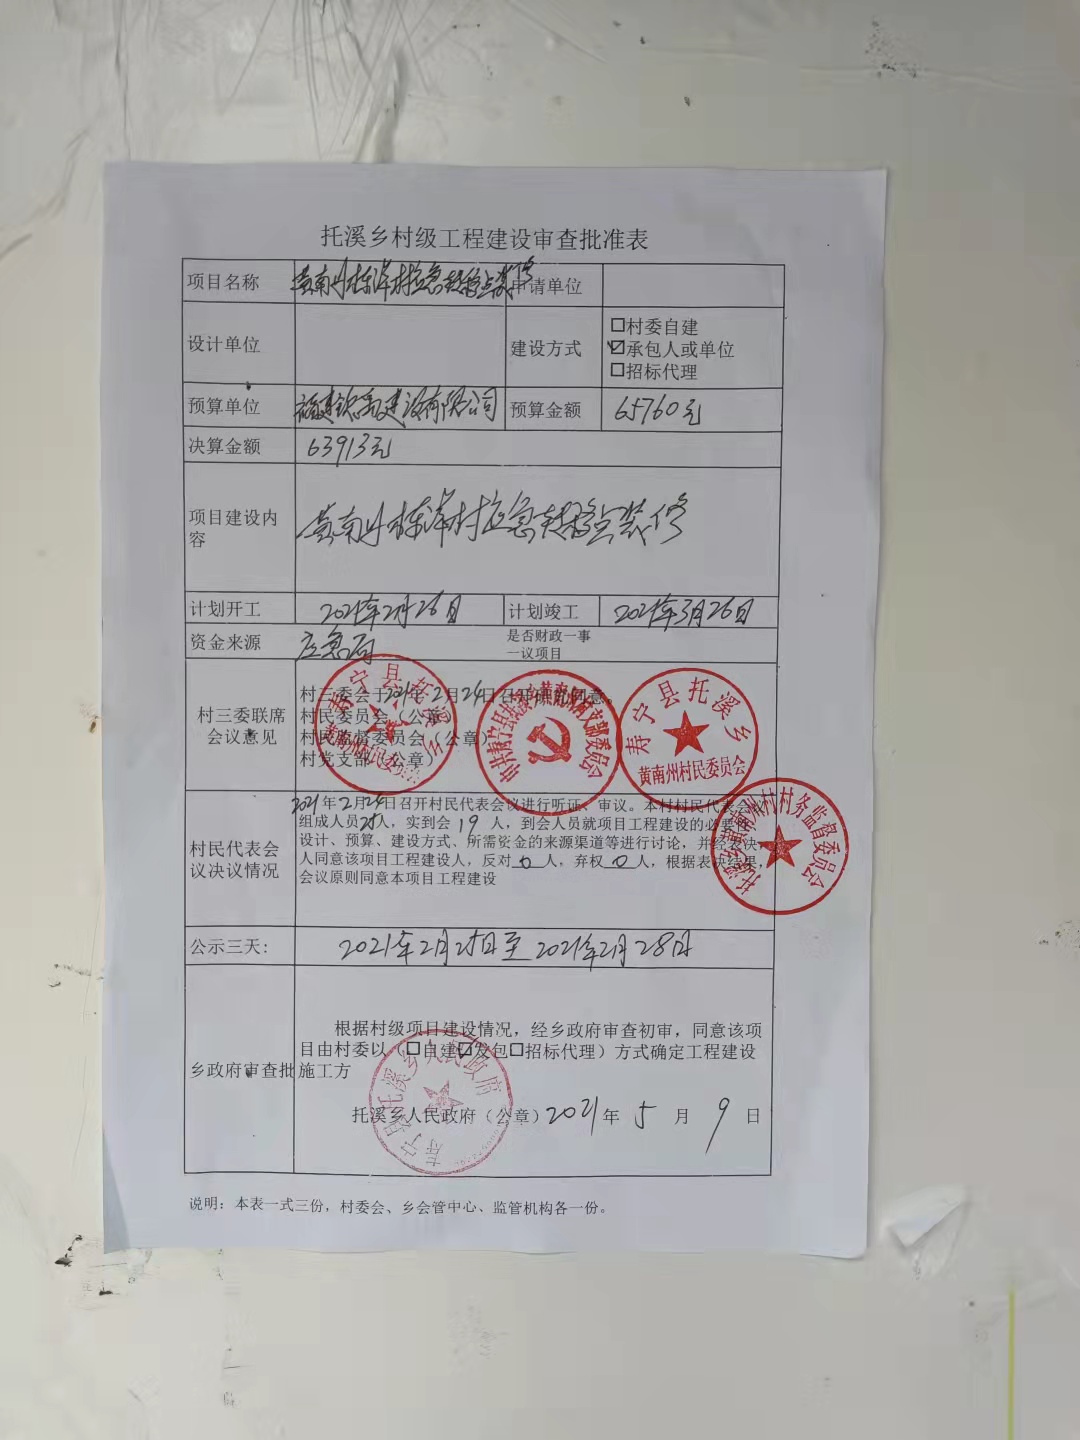 托溪乡村级工程建设审查批准表
项目名称 黄南州栋洋村应急 点装修 申请单位
设计单位 建设方式 □村委自建
☑承包人或单位
□招标代理
预算单位 福建 建设有限公司 预算金额 65760元
决算金额 63913元
项目建设内容 黄南州栋洋村应急 点装修
计划开工 2021年2月26日 计划竣工 2021年3月26日
资金来源 应急局 是否财政一事
一议项目
村三委联席
会议意见
村三委会于2021年2月24日召开 同意。
村民委员会（公章）
村民监督委员会（公章）
村党支部（公章）
寿宁县托溪乡
黄南州村民委员会
中共寿宁县托溪乡黄南州村支部委员会
寿宁县托溪乡
黄南州村民委员会
托溪乡黄南州村村务监督委员会
村民代表会
议决议情况
2021年2月25日召开村民代表会议进行听证、审议。本村村民代表会议
组成人员25人，实到会19人，到会人员就项目工程建设的必要性、
设计、预算、建设方式、所需资金的来源渠道等进行讨论，并经表决，
人同意该项目工程建设人，反对0人，弃权0人，根据表决结果，
会议原则同意本项目工程建设
公示三天： 2021年2月25日至2021年2月28日
乡政府审查批
根据村级项目建设情况，经乡政府审查初审，同意该项
目由村委以（□自建☑发包□招标代理）方式确定工程建设
施工方
托溪乡人民政府（公章）2021年5月9日
寿宁县托溪乡人民政府
说明：本表一式三份，村委会、乡会管中心、监管机构各一份。